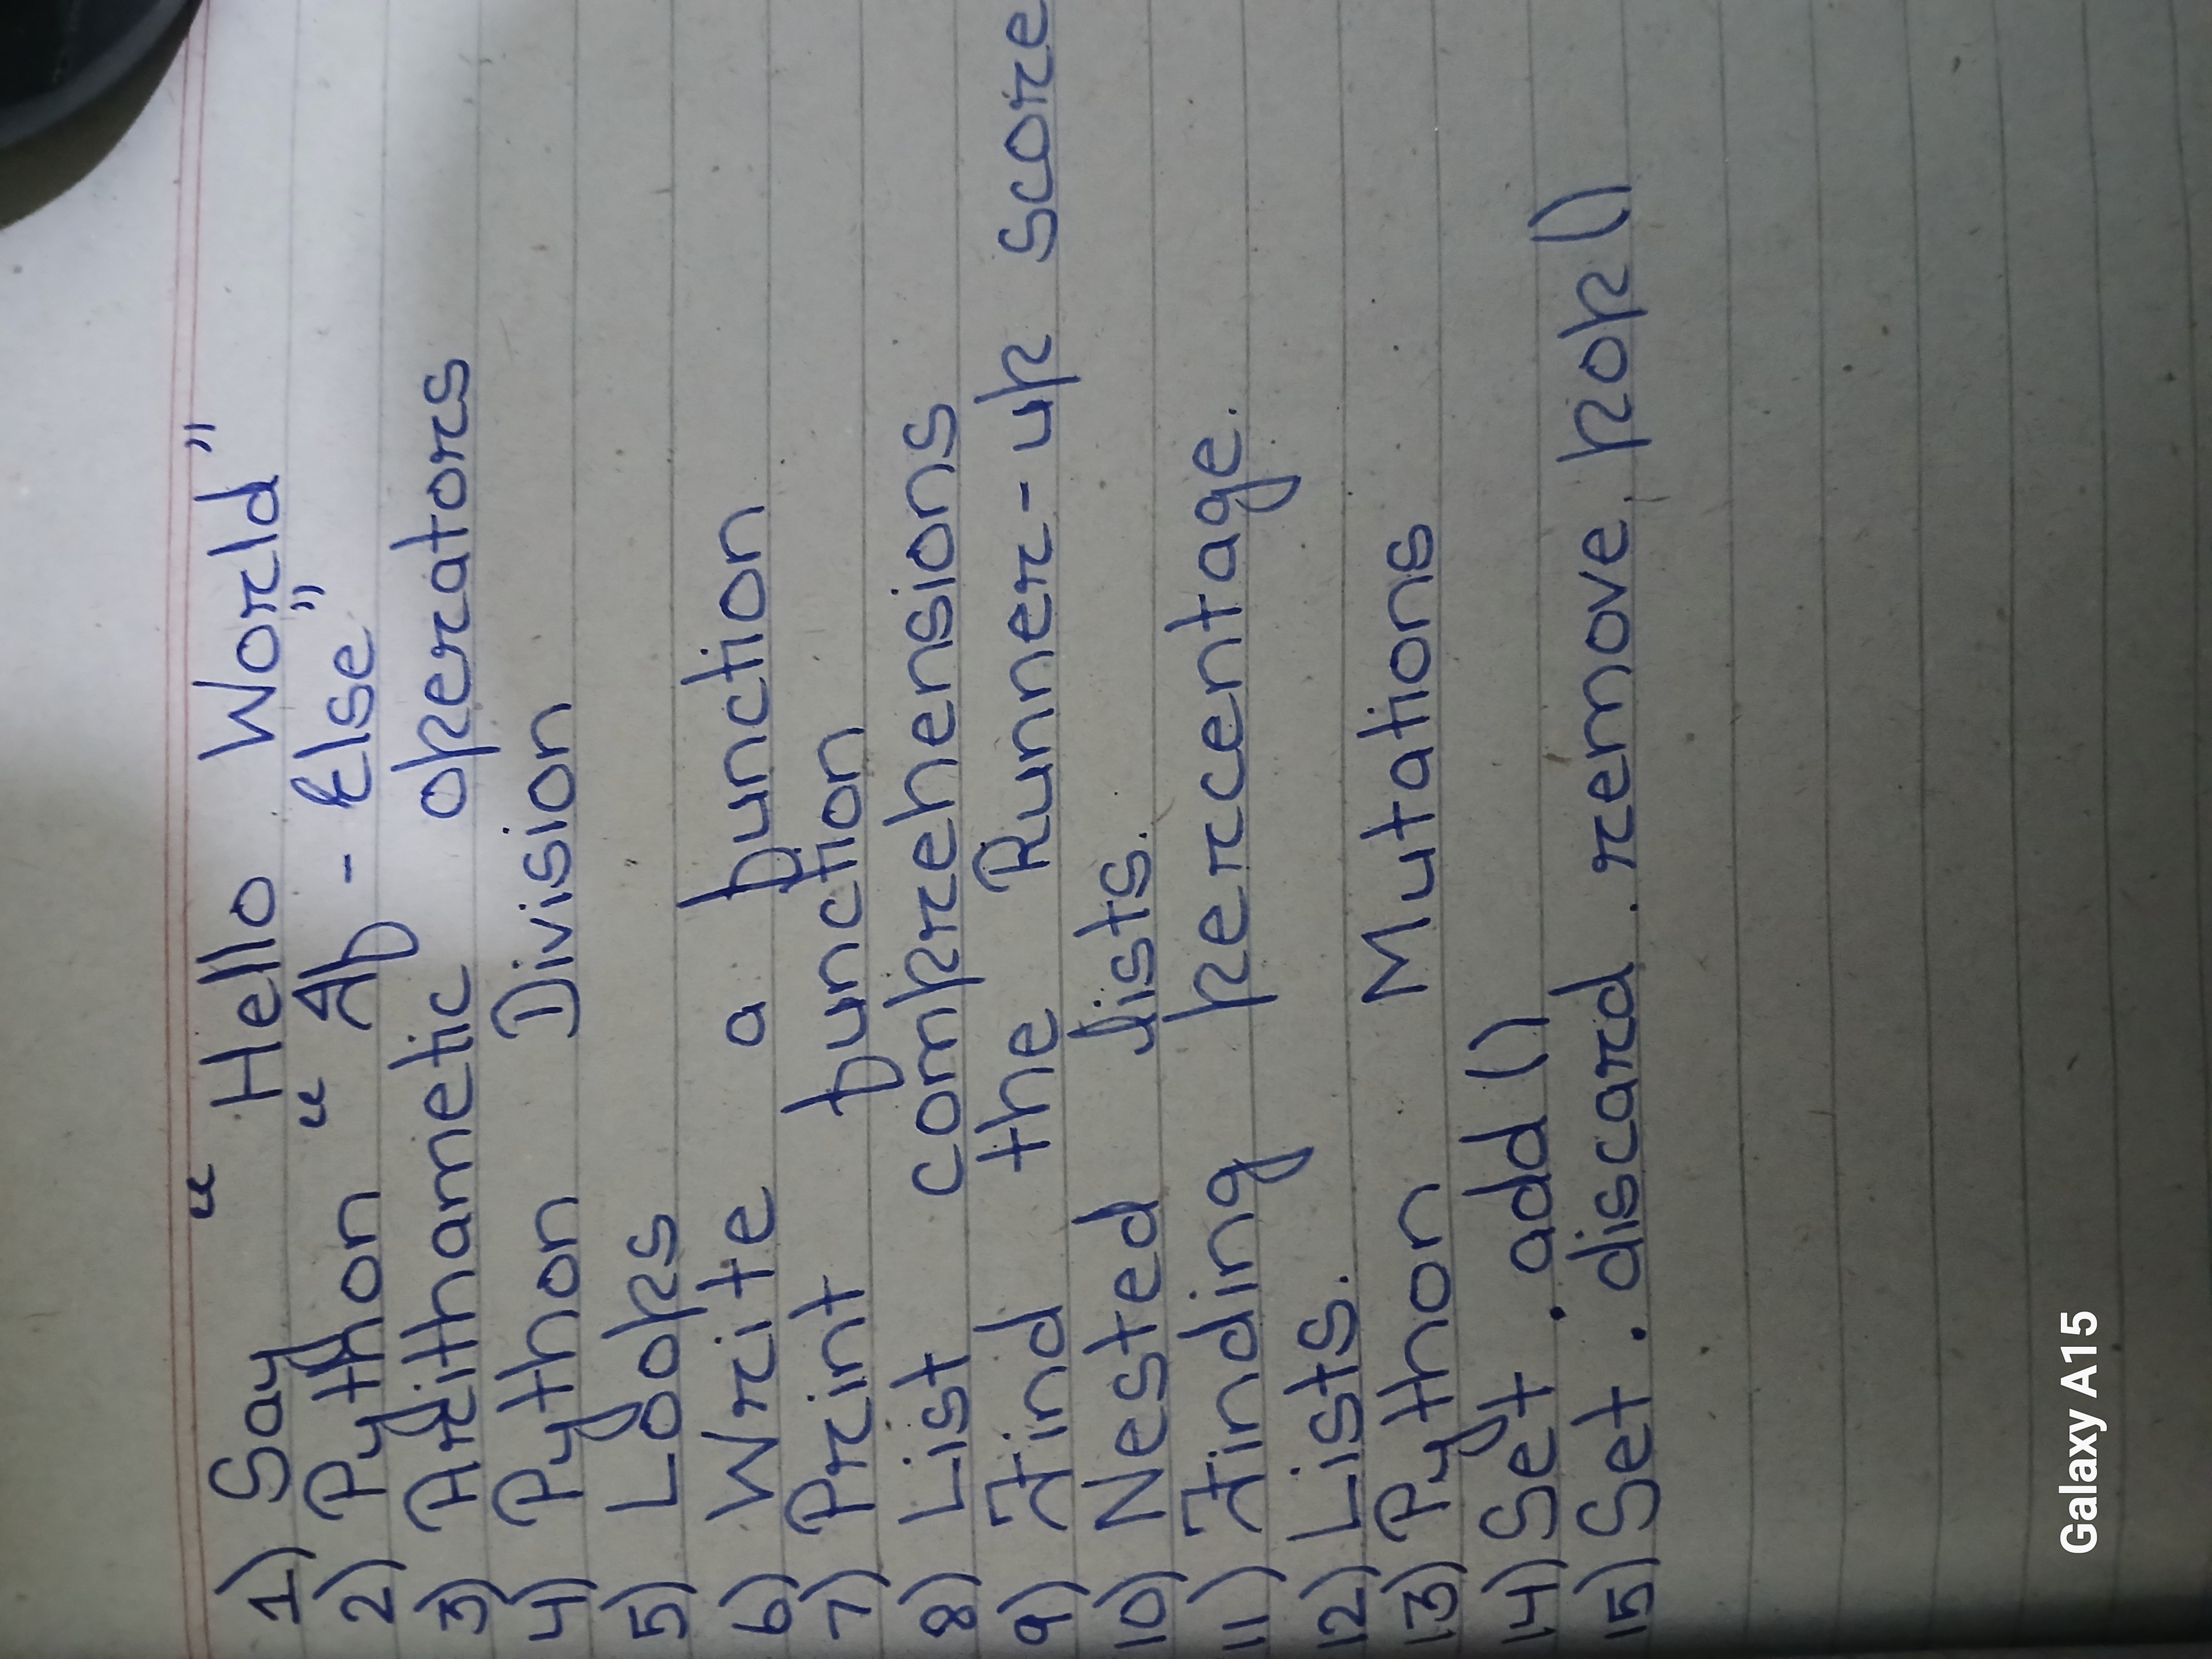 1) Say "Hello World"
2) Python "If - Else"
3) Arithametic operators
4) Python Division
5) Loops
6) Write a function
7) Print function
8) List comprehensions
9) Find the Runner-up score
10) Nested lists.
11) Finding percentage.
12) Lists.
13) Python Mutations
14) Set . add ()
15) Set . discard . remove . pop ()
Galaxy A15